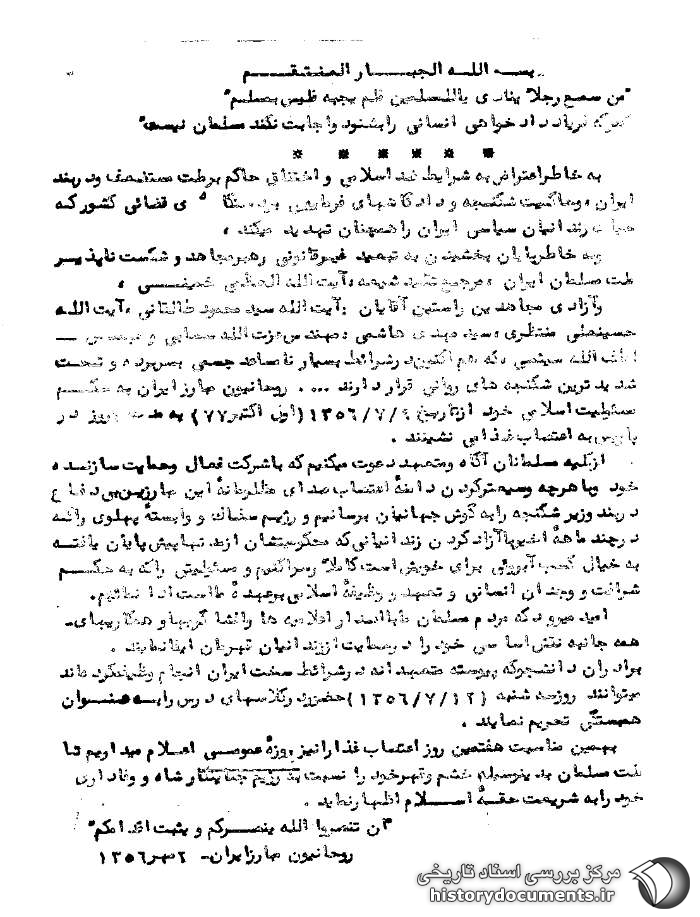 بسم الله الجبار المنتقم
"من سمع رجلا" ینادی یاللمسلمین فلم یجبه فلیس بمسلم"
"هرکه فریاد دادخواهی انسانی را بشنود و اجابت نکند مسلمان نیست"
به خاطر اعتراض به شرایط ضد اسلامی و اختناق حاکم بر ملت مستضعف و در بند
ایران ، وحاکمیت شکنجه و دادگاههای فرمایشی ی قضائی کشور که
زندانیان سیاسی ایران را همچنان تهدید میکند ،
وبه خاطر پایان بخشیدن به تبعید غیرقانونی رهبر مجاهد و شکست ناپذیر
ملت مسلمان ایران ، مرجع تقلید شیعه ،آیت الله العظمی خمینی ،
وآزادی مجاهدین راستین آقایان :آیت الله سید محمود طالقانی ،آیت الله
حسینعلی منتظری ،سید مهدی هاشمی ،مهندس عزت الله سحابی و مهندس —
لطف الله میثمی ،که هم اکنون در شرائط بسیار نامساعد جسمی بسر برده و تحت
شدیدترین شکنجه های روانی قرار دارند .... روحانیون مبارز ایران به حکم
مسئولیت اسلامی خود از تاریخ ۱۳۵۶/۷/۹ (اول اکتبر ۷۷) به مدت روز در
پاریس به اعتصاب غذا می نشینند .
از کلیه مسلمانان آگاه و متعهد دعوت میکنیم که با شرکت فعال و حمایت سازنده
خود وبا هرچه وسیعتر کردن دامنهٔ اعتصاب صدای مظلومانهٔ این مبارزین بی دفاع
در بند و زیر شکنجه را به گوش جهانیان برسانیم و رژیم سفاک و وابستهٔ پهلوی را که
در چند ماههٔ اخیر با آزاد کردن زندانیانی که محکومیتشان از مدتها پیش پایان یافته
به خیال کسب آبروئی برای خویش است کاملاً رسوا کنیم و مسئولیتی را که به حکم
شرافت و وجدان انسانی و تعهد و وظیفهٔ اسلامی بر عهدهٔ ما است ادا نمائیم.
امید میرود که مردم مسلمان ما با صدور اعلامیه ها و افشاگریها و همکاریهای-
همه جانبه نقش اساسی خود را در حمایت از زندانیان قهرمان ایفا نمایند .
برادران دانشجو که پیوسته متعهدانه در شرائط سخت ایران انجام وظیفه کرده اند
میتوانند روز سه شنبه (۱۳۵۶/۷/۱۲) حضور در کلاسهای درس را به عنوان
همبستگی تحریم نمایند .
بهمین مناسبت هفتمین روز اعتصاب غذا را نیز روزهٔ عمومی اعلام میداریم تا
ملت مسلمان بدینوسیله خشم و قهر خود را نسبت به رژیم جنایتکار شاه و وفاداری
خود را به شریعت حقهٔ اسلام اظهار نماید .
"ان تنصروا الله ینصرکم و یثبت اقدامکم"
روحانیون مبارز ایران- ۲ مهر ۱۳۵۶
مرکز بررسی اسناد تاریخی
historydocuments.ir